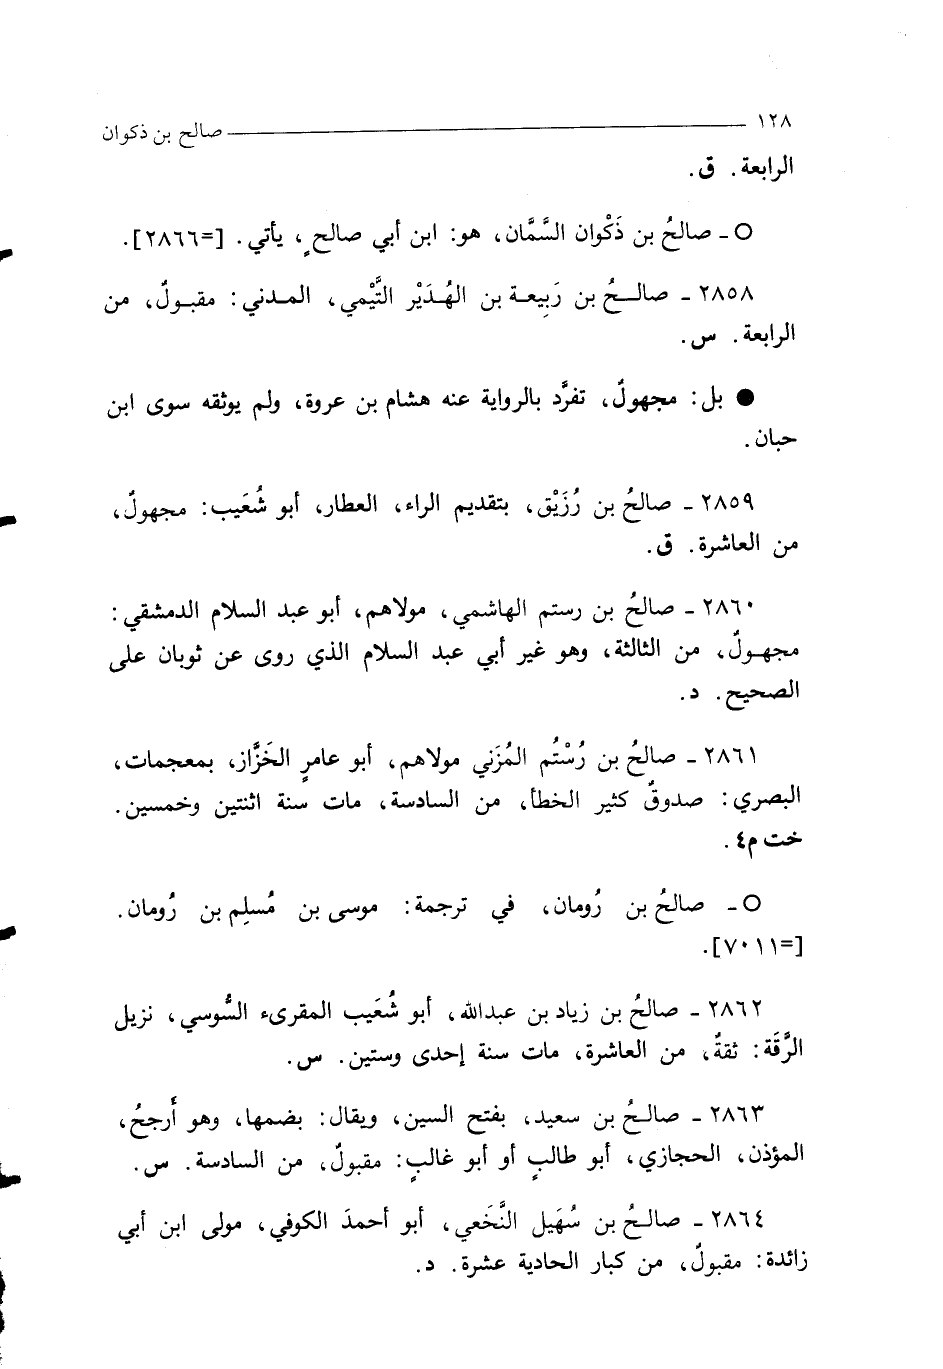 ١٢٨ صالح بن ذكوان
الرابعة. ق.
○ ـ صالحُ بن ذَكْوان السَّمَّان، هو: ابن أبي صالحٍ، يأتي. [=٢٨٦٦].
٢٨٥٨ ـ صالحُ بن رَبِيعة بن الهُدَيْر التَّيْمي، المدني: مقبولٌ، من
الرابعة. س.
● بل: مجهولٌ، تفرَّد بالرواية عنه هشام بن عروة، ولم يوثقه سوى ابن
حبان.
٢٨٥٩ ـ صالحُ بن رُزَيْق، بتقديم الراء، العطار، أبو شُعَيب: مجهولٌ،
من العاشرة. ق.
٢٨٦٠ ـ صالحُ بن رستم الهاشمي، مولاهم، أبو عبد السلام الدمشقي:
مجهولٌ، من الثالثة، وهو غير أبي عبد السلام الذي روى عن ثوبان على
الصحيح. د.
٢٨٦١ ـ صالحُ بن رُسْتُم المُزَني مولاهم، أبو عامرٍ الخَزَّاز، بمعجمات،
البصري: صدوقٌ كثير الخطأ، من السادسة، مات سنة اثنتين وخمسين.
خت م٤.
○ ـ صالحُ بن رُومان، في ترجمة: موسى بن مُسلِم بن رُومان.
[=٧٠١١].
٢٨٦٢ ـ صالحُ بن زياد بن عبدالله، أبو شُعَيب المقرىء السُّوسي، نزيل
الرَّقَة: ثقةٌ، من العاشرة، مات سنة إحدى وستين. س.
٢٨٦٣ ـ صالحُ بن سعيد، بفتح السين، ويقال: بضمها، وهو أَرجحُ،
المؤذن، الحجازي، أبو طالبٍ أو أبو غالبٍ: مقبولٌ، من السادسة. س.
٢٨٦٤ ـ صالحُ بن سُهَيل النَّخَعي، أبو أحمدَ الكوفي، مولى ابن أبي
زائدة: مقبولٌ، من كبار الحادية عشرة. د.